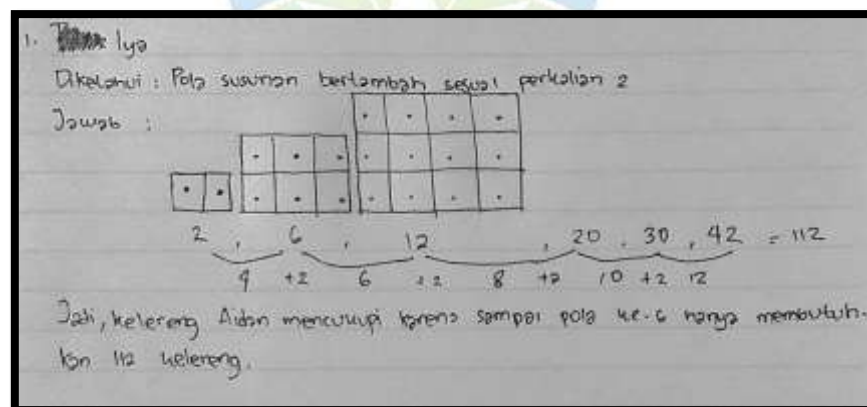 1. Iya
Diketahui : Pola susunan bertambah sesuai perkalian 2
Jawab :
2 , 6 , 12 , 20 , 30 , 42 = 112
4 +2 6 +2 8 +2 10 +2 12
Jadi, kelereng Aidan mencukupi karena sampai pola ke-6 hanya membutuh-
kan 112 kelereng.